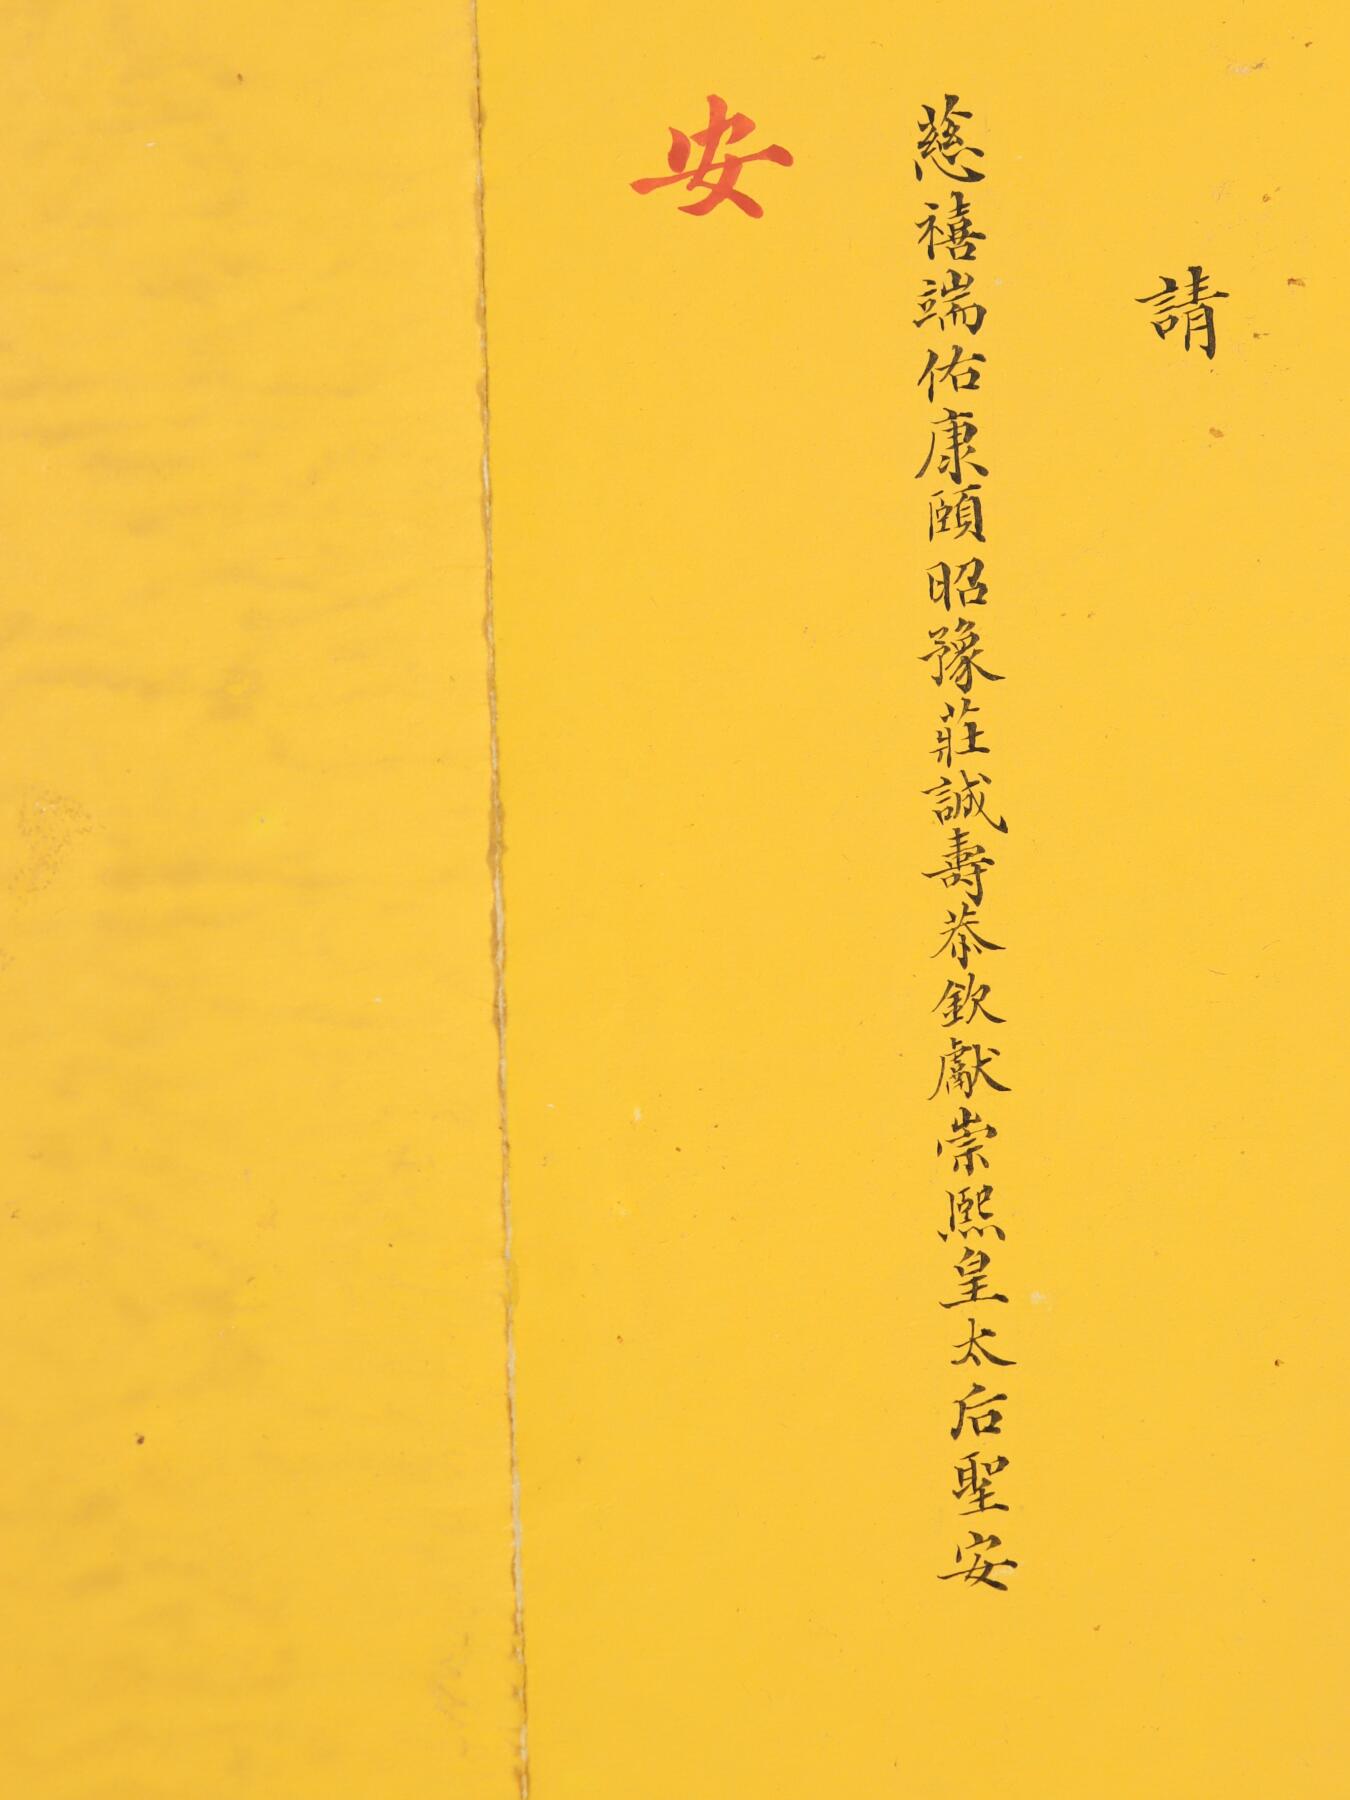 請
慈禧端佑康頤昭豫莊誠壽恭欽獻崇熙皇太后聖安
安